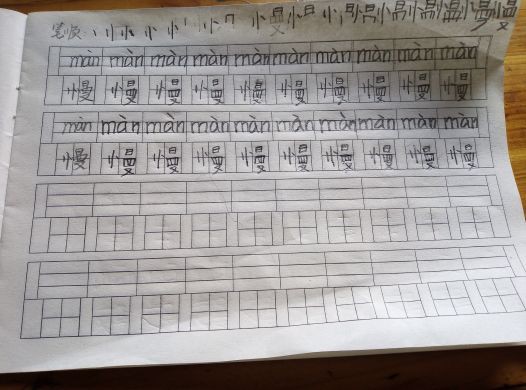 笔顺:
màn màn màn màn màn màn màn màn màn màn
慢 慢 慢 慢 慢 慢 慢 慢 慢 慢
màn màn màn màn màn màn màn màn màn màn
慢 慢 慢 慢 慢 慢 慢 慢 慢 慢